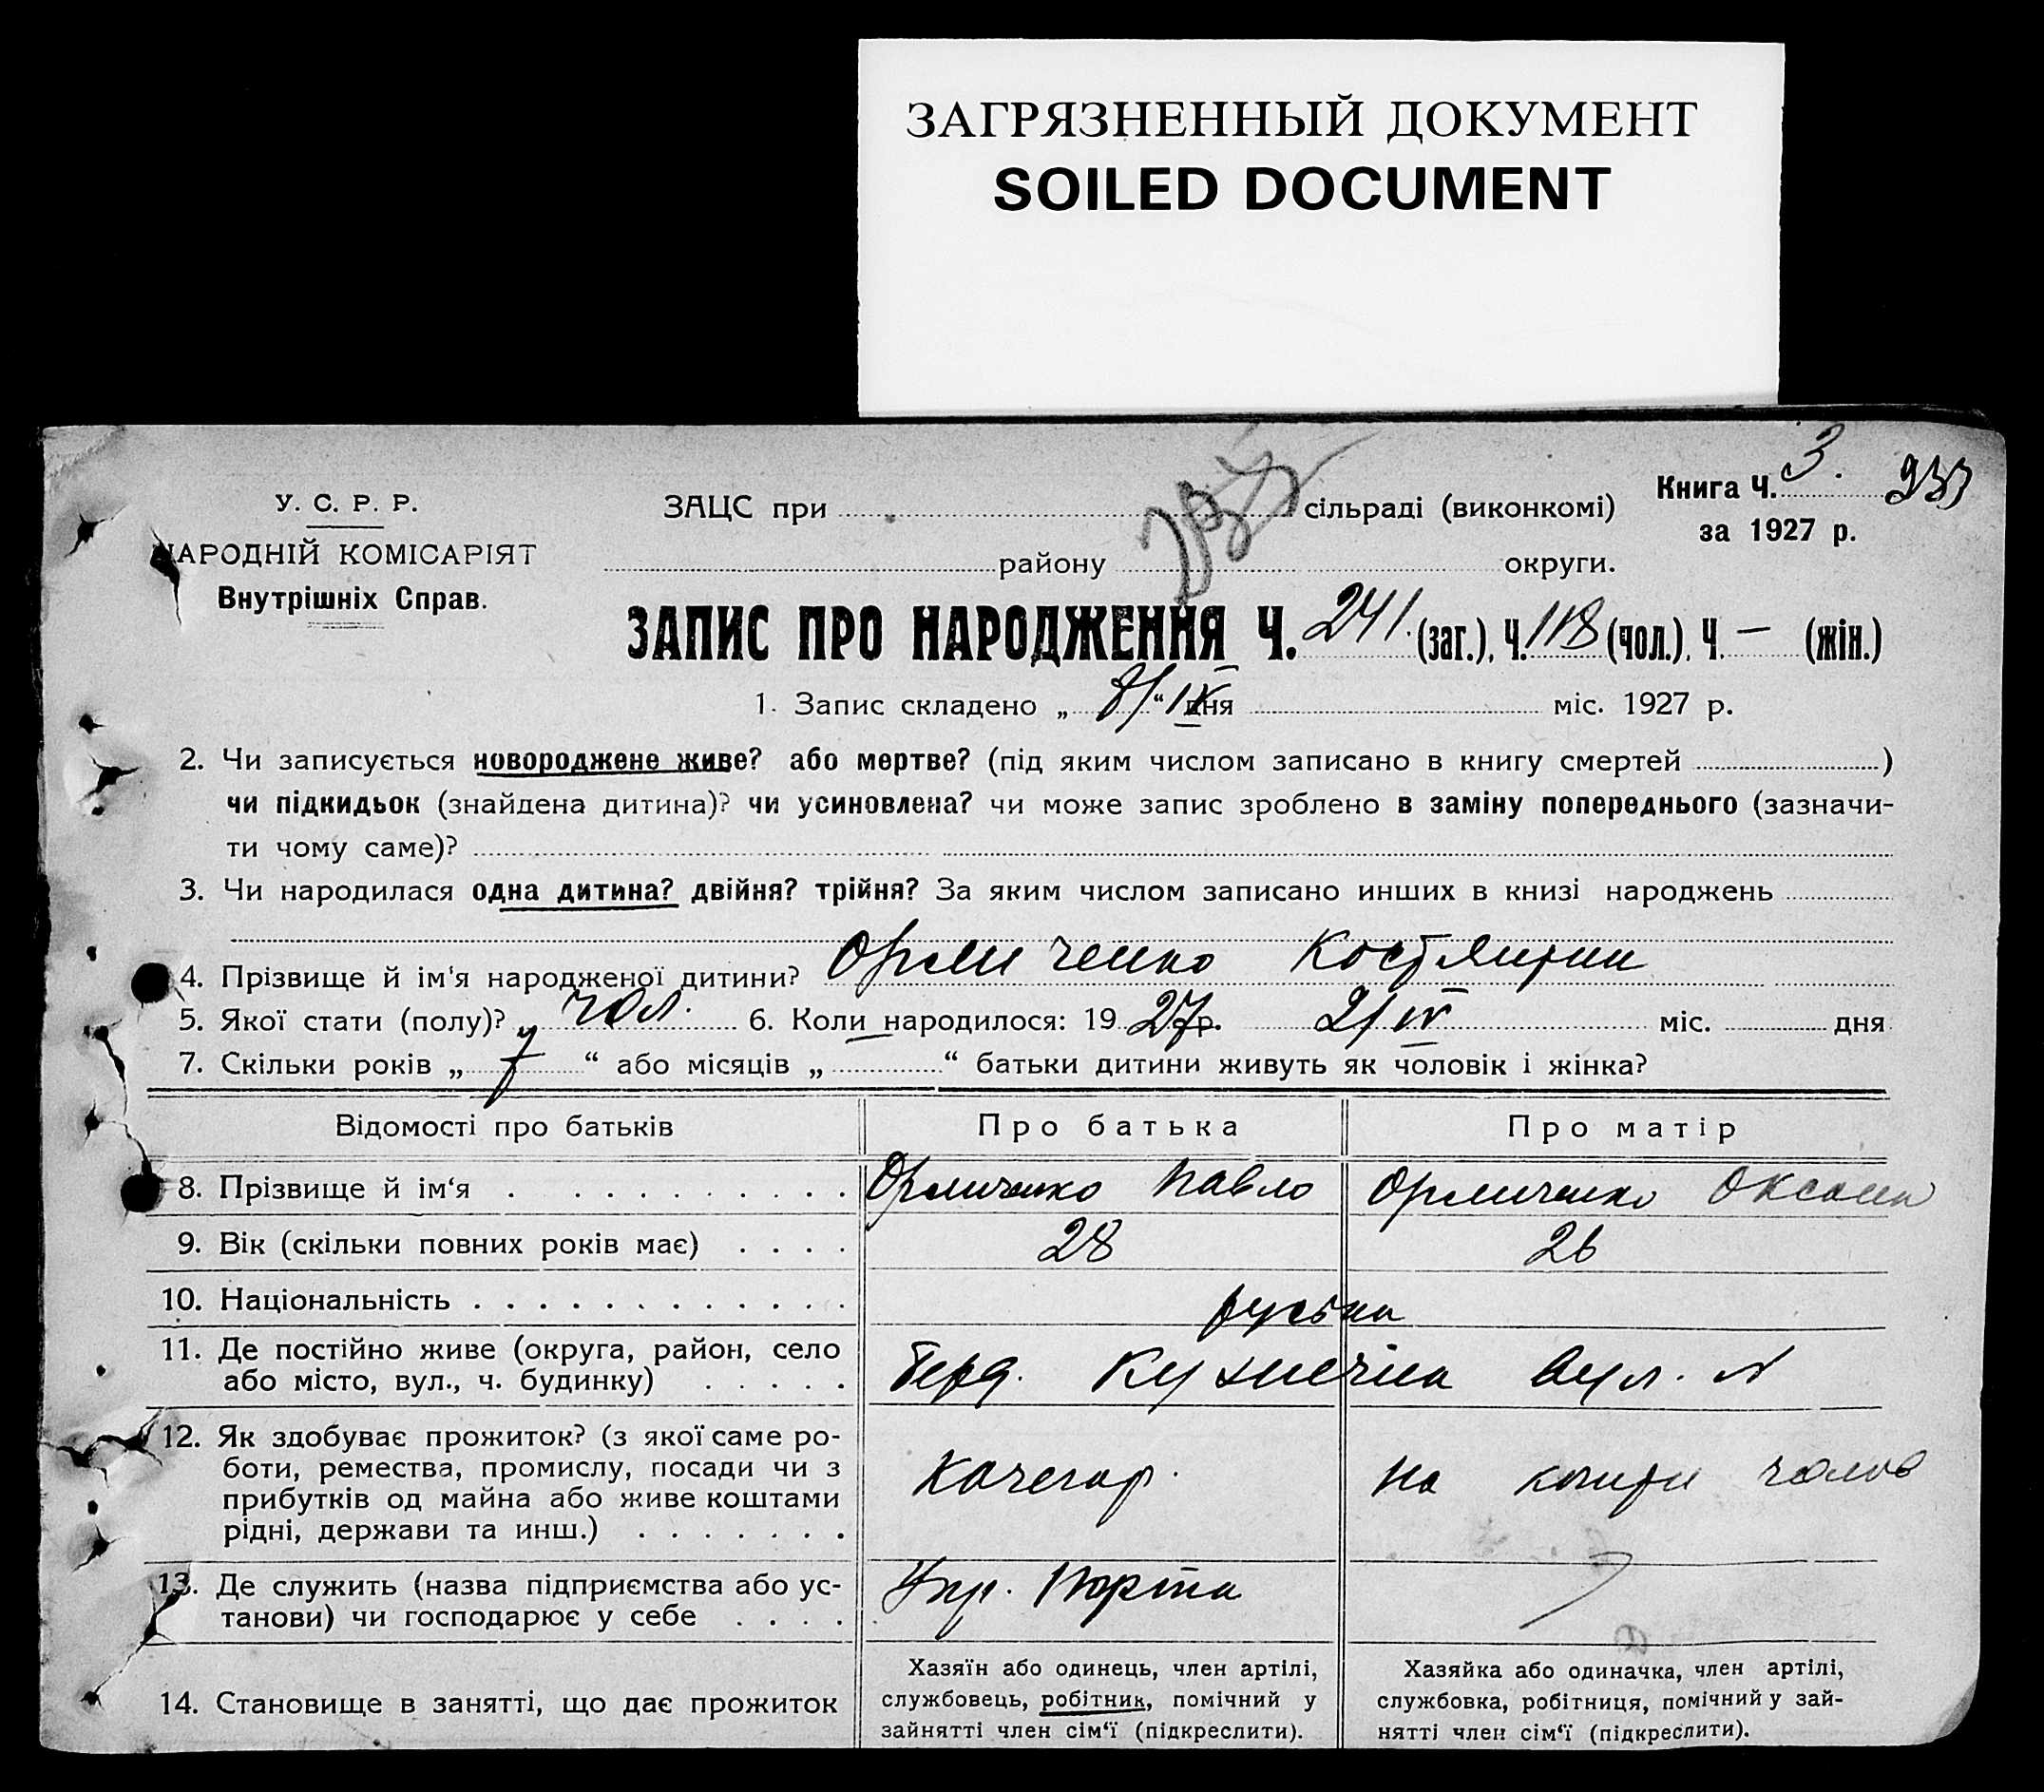 ЗАГРЯЗНЕННЫЙ ДОКУМЕНТ
SOILED DOCUMENT
Книга Ч. 3.
У. С. Р. Р.
ЗАЦС при сільраді (виконкомі)
за 1927 р.
НАРОДНІЙ КОМІСАРІЯТ
району округи.
Внутрішніх Справ.
ЗАПИС ПРО НАРОДЖЕННЯ Ч. 241. (заг.), Ч. 118 (чол.), Ч. — (жін.)
1. Запис складено „ 8/IV “ дня міс. 1927 р.
2. Чи записується новороджене живе? або мертве? (під яким числом записано в книгу смертей )
чи підкидьок (знайдена дитина)? чи усиновлена? чи може запис зроблено в заміну попереднього (зазначи-
ти чому саме)?
3. Чи народилася одна дитина? двійня? трійня? За яким числом записано инших в книзі народжень
4. Прізвище й ім‘я народженої дитини? Костянтин
5. Якої стати (полу)? чол. 6. Коли народилося: 19 27 р. 2/IV міс. дня
7. Скільки років „ 7 “ або місяців „ “ батьки дитини живуть як чоловік і жінка?
Відомості про батьків Про батька Про матір
8. Прізвище й ім‘я Павло Оксана
9. Вік (скільки повних років має) 28 26
10. Національність
11. Де постійно живе (округа, район, село
або місто, вул., ч. будинку) Берд. Кузнечна вул. №
12. Як здобуває прожиток? (з якої саме ро-
боти, ремества, промислу, посади чи з
прибутків од майна або живе коштами
рідні, держави та инш.) Качегар. На кошти чолов
13. Де служить (назва підприємства або ус-
танови) чи господарює у себе Упр. Порта
14. Становище в занятті, що дає прожиток
Хазяїн або одинець, член артілі,
службовець, робітник, помічний у
зайнятті член сім‘ї (підкреслити).
Хазяйка або одиначка, член артілі,
службовка, робітниця, помічний у зай-
нятті член сім‘ї (підкреслити).